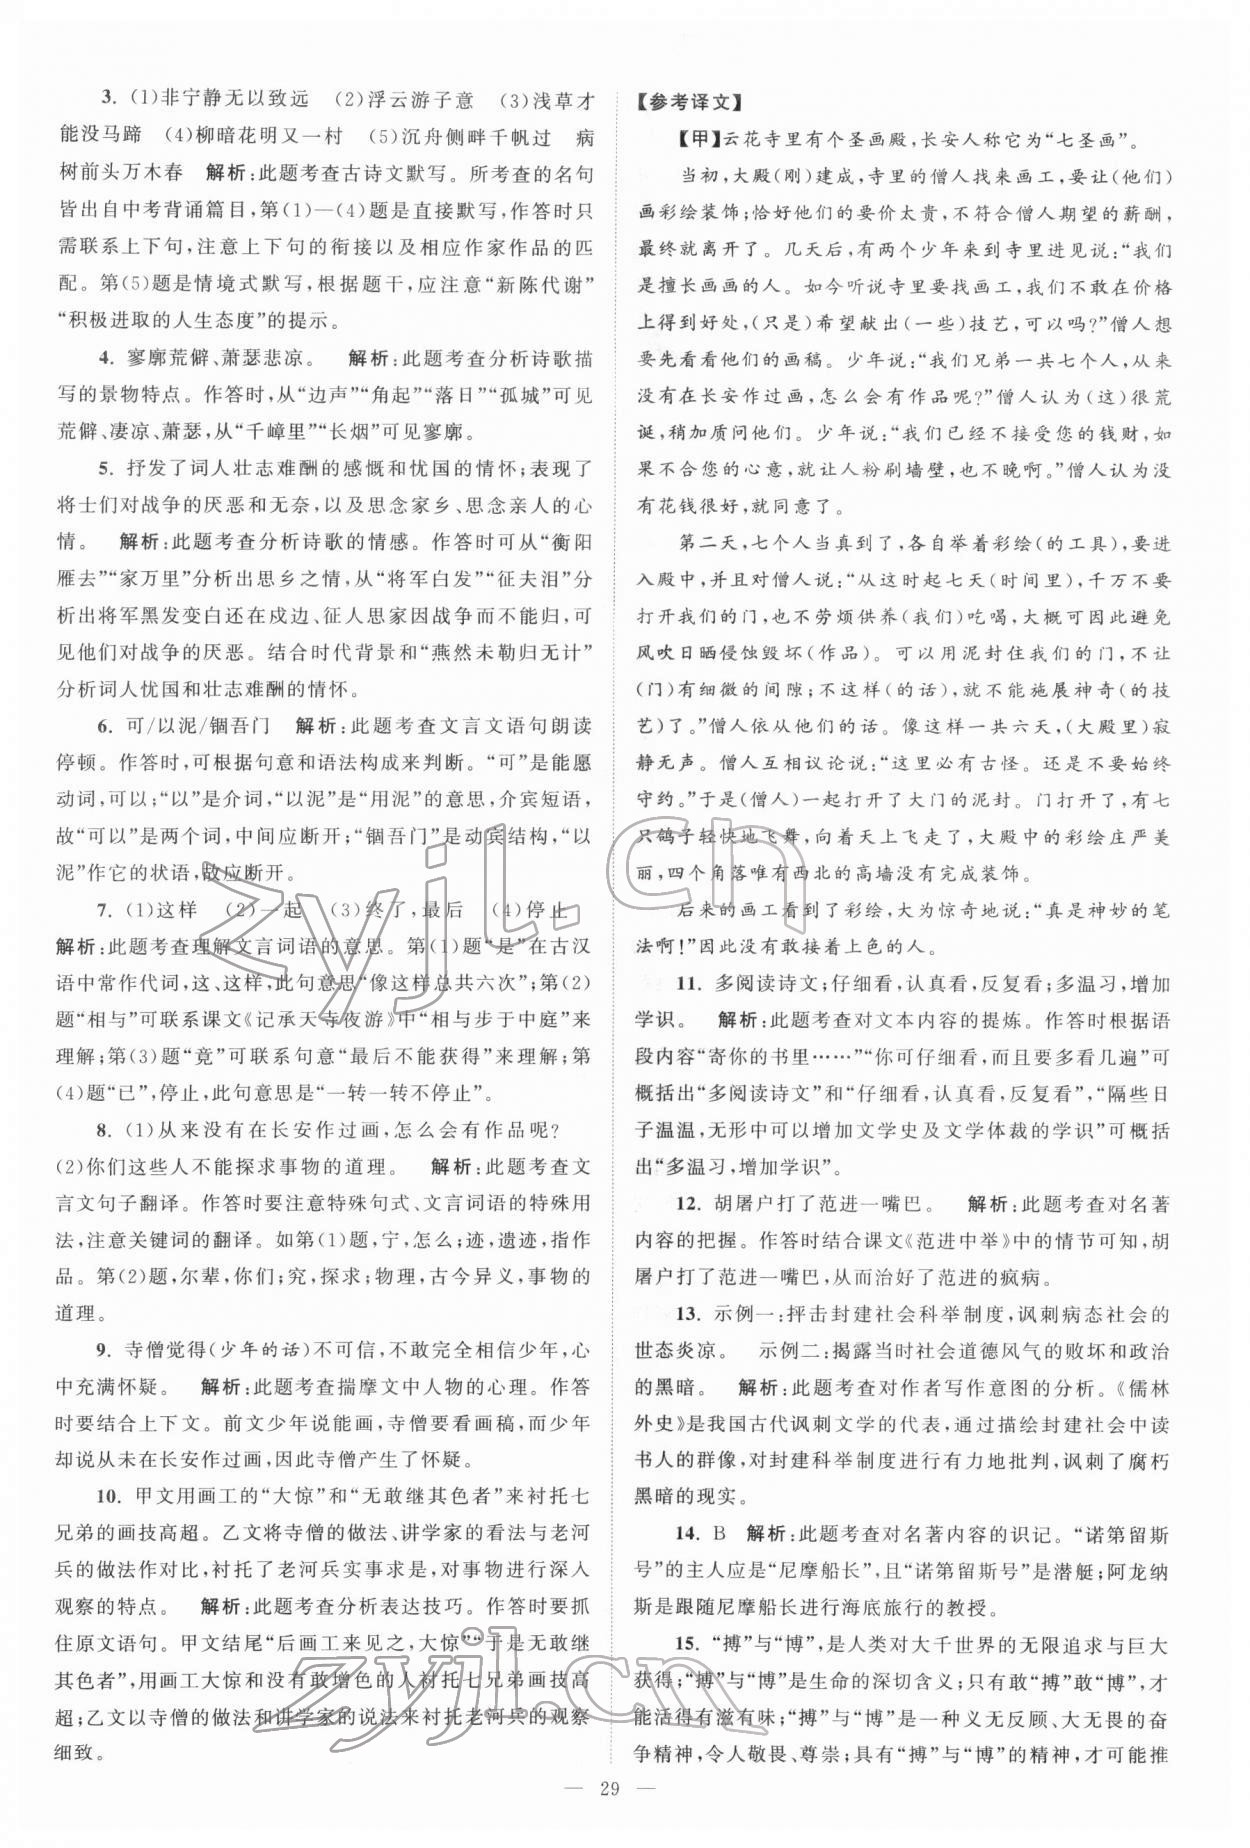 3. (1)非宁静无以致远　(2)浮云游子意　(3)浅草才
能没马蹄　(4)柳暗花明又一村　(5)沉舟侧畔千帆过　病
树前头万木春　解析:此题考查古诗文默写。所考查的名句
皆出自中考背诵篇目,第(1)—(4)题是直接默写,作答时只
需联系上下句,注意上下句的衔接以及相应作家作品的匹
配。第(5)题是情境式默写,根据题干,应注意“新陈代谢”
“积极进取的人生态度”的提示。
4. 寥廓荒僻、萧瑟悲凉。　解析:此题考查分析诗歌描
写的景物特点。作答时,从“边声”“角起”“落日”“孤城”可见
荒僻、凄凉、萧瑟,从“千嶂里”“长烟”可见寥廓。
5. 抒发了词人壮志难酬的感慨和忧国的情怀;表现了
将士们对战争的厌恶和无奈,以及思念家乡、思念亲人的心
情。　解析:此题考查分析诗歌的情感。作答时可从“衡阳
雁去”“家万里”分析出思乡之情,从“将军白发”“征夫泪”分
析出将军黑发变白还在戍边、征人思家因战争而不能归,可
见他们对战争的厌恶。结合时代背景和“燕然未勒归无计”
分析词人忧国和壮志难酬的情怀。
6. 可/以泥/锢吾门　解析:此题考查文言文语句朗读
停顿。作答时,可根据句意和语法构成来判断。“可”是能愿
动词,可以;“以”是介词,“以泥”是“用泥”的意思,介宾短语,
故“可以”是两个词,中间应断开;“锢吾门”是动宾结构,“以
泥”作它的状语,故应断开。
7. (1)这样　(2)一起　(3)终了,最后　(4)停止
解析:此题考查理解文言词语的意思。第(1)题“是”在古汉
语中常作代词,这、这样,此句意思“像这样总共六次”;第(2)
题“相与”可联系课文《记承天寺夜游》中“相与步于中庭”来
理解;第(3)题“竟”可联系句意“最后不能获得”来理解;第
(4)题“已”,停止,此句意思是“一转一转不停止”。
8. (1)从来没有在长安作过画,怎么会有作品呢?
(2)你们这些人不能探求事物的道理。　解析:此题考查文
言文句子翻译。作答时要注意特殊句式、文言词语的特殊用
法,注意关键词的翻译。如第(1)题,宁,怎么;迹,遗迹,指作
品。第(2)题,尔辈,你们;究,探求;物理,古今异义,事物的
道理。
9. 寺僧觉得(少年的话)不可信,不敢完全相信少年,心
中充满怀疑。　解析:此题考查揣摩文中人物的心理。作答
时要结合上下文。前文少年说能画,寺僧要看画稿,而少年
却说从未在长安作过画,因此寺僧产生了怀疑。
10. 甲文用画工的“大惊”和“无敢继其色者”来衬托七
兄弟的画技高超。乙文将寺僧的做法、讲学家的看法与老河
兵的做法作对比,衬托了老河兵实事求是,对事物进行深入
观察的特点。　解析:此题考查分析表达技巧。作答时要抓
住原文语句。甲文结尾“后画工来见之,大惊”“于是无敢继
其色者”,用画工大惊和没有敢增色的人衬托七兄弟画技高
超;乙文以寺僧的做法和讲学家的说法来衬托老河兵的观察
细致。
【参考译文】
【甲】云花寺里有个圣画殿,长安人称它为“七圣画”。
当初,大殿(刚)建成,寺里的僧人找来画工,要让(他们)
画彩绘装饰;恰好他们的要价太贵,不符合僧人期望的薪酬,
最终就离开了。几天后,有两个少年来到寺里进见说:“我们
是擅长画画的人。如今听说寺里要找画工,我们不敢在价格
上得到好处,(只是)希望献出(一些)技艺,可以吗?”僧人想
要先看看他们的画稿。少年说:“我们兄弟一共七个人,从来
没有在长安作过画,怎么会有作品呢?”僧人认为(这)很荒
诞,稍加质问他们。少年说:“我们已经不接受您的钱财,如
果不合您的心意,就让人粉刷墙壁,也不晚啊。”僧人认为没
有花钱很好,就同意了。
第二天,七个人当真到了,各自举着彩绘(的工具),要进
入殿中,并且对僧人说:“从这时起七天(时间里),千万不要
打开我们的门,也不劳烦供养(我们)吃喝,大概可因此避免
风吹日晒侵蚀毁坏(作品)。可以用泥封住我们的门,不让
(门)有细微的间隙;不这样(的话),就不能施展神奇(的技
艺)了。”僧人依从他们的话。像这样一共六天,(大殿里)寂
静无声。僧人互相议论说:“这里必有古怪。还是不要始终
守约。”于是(僧人)一起打开了大门的泥封。门打开,有七
只鸽子轻快地飞舞,向着天上飞走了,大殿中的彩绘庄严美
丽,四个角落唯有西北的高墙没有完成装饰。
后来的画工看到了彩绘,大为惊奇地说:“真是神妙的笔
法啊!”因此没有敢接着上色的人。
11. 多阅读诗文;仔细看,认真看,反复看;多温习,增加
学识。　解析:此题考查对文本内容的提炼。作答时根据语
段内容“寄你的书里……”“你可仔细看,而且要多看几遍”可
概括出“多阅读诗文”和“仔细看,认真看,反复看”,“隔些日
子温温,无形中可以增加文学史及文学体裁的学识”可概括
出“多温习,增加学识”。
12. 胡屠户打了范进一嘴巴。　解析:此题考查对名著
内容的把握。作答时结合课文《范进中举》中的情节可知,胡
屠户打了范进一嘴巴,从而治好了范进的疯病。
13. 示例一:抨击封建社会科举制度,讽刺病态社会的
世态炎凉。　示例二:揭露当时社会道德风气的败坏和政治
的黑暗。　解析:此题考查对作者写作意图的分析。《儒林
外史》是我国古代讽刺文学的代表,通过描绘封建社会中读
书人的群像,对封建科举制度进行有力地批判,讽刺了腐朽
黑暗的现实。
14. B　解析:此题考查对名著内容的识记。“诺第留斯
号”的主人应是“尼摩船长”,且“诺第留斯号”是潜艇;阿龙纳
斯是跟随尼摩船长进行海底旅行的教授。
15. “搏”与“博”,是人类对大千世界的无限追求与巨大
获得;“搏”与“博”是生命的深切含义;只有敢“搏”敢“博”,才
能活得有滋有味;“搏”与“博”是一种义无反顾、大无畏的奋
争精神,令人敬畏、尊崇;具有“搏”与“博”的精神,才可能推
— 29 —
zyjl.cn
zyjl.cn